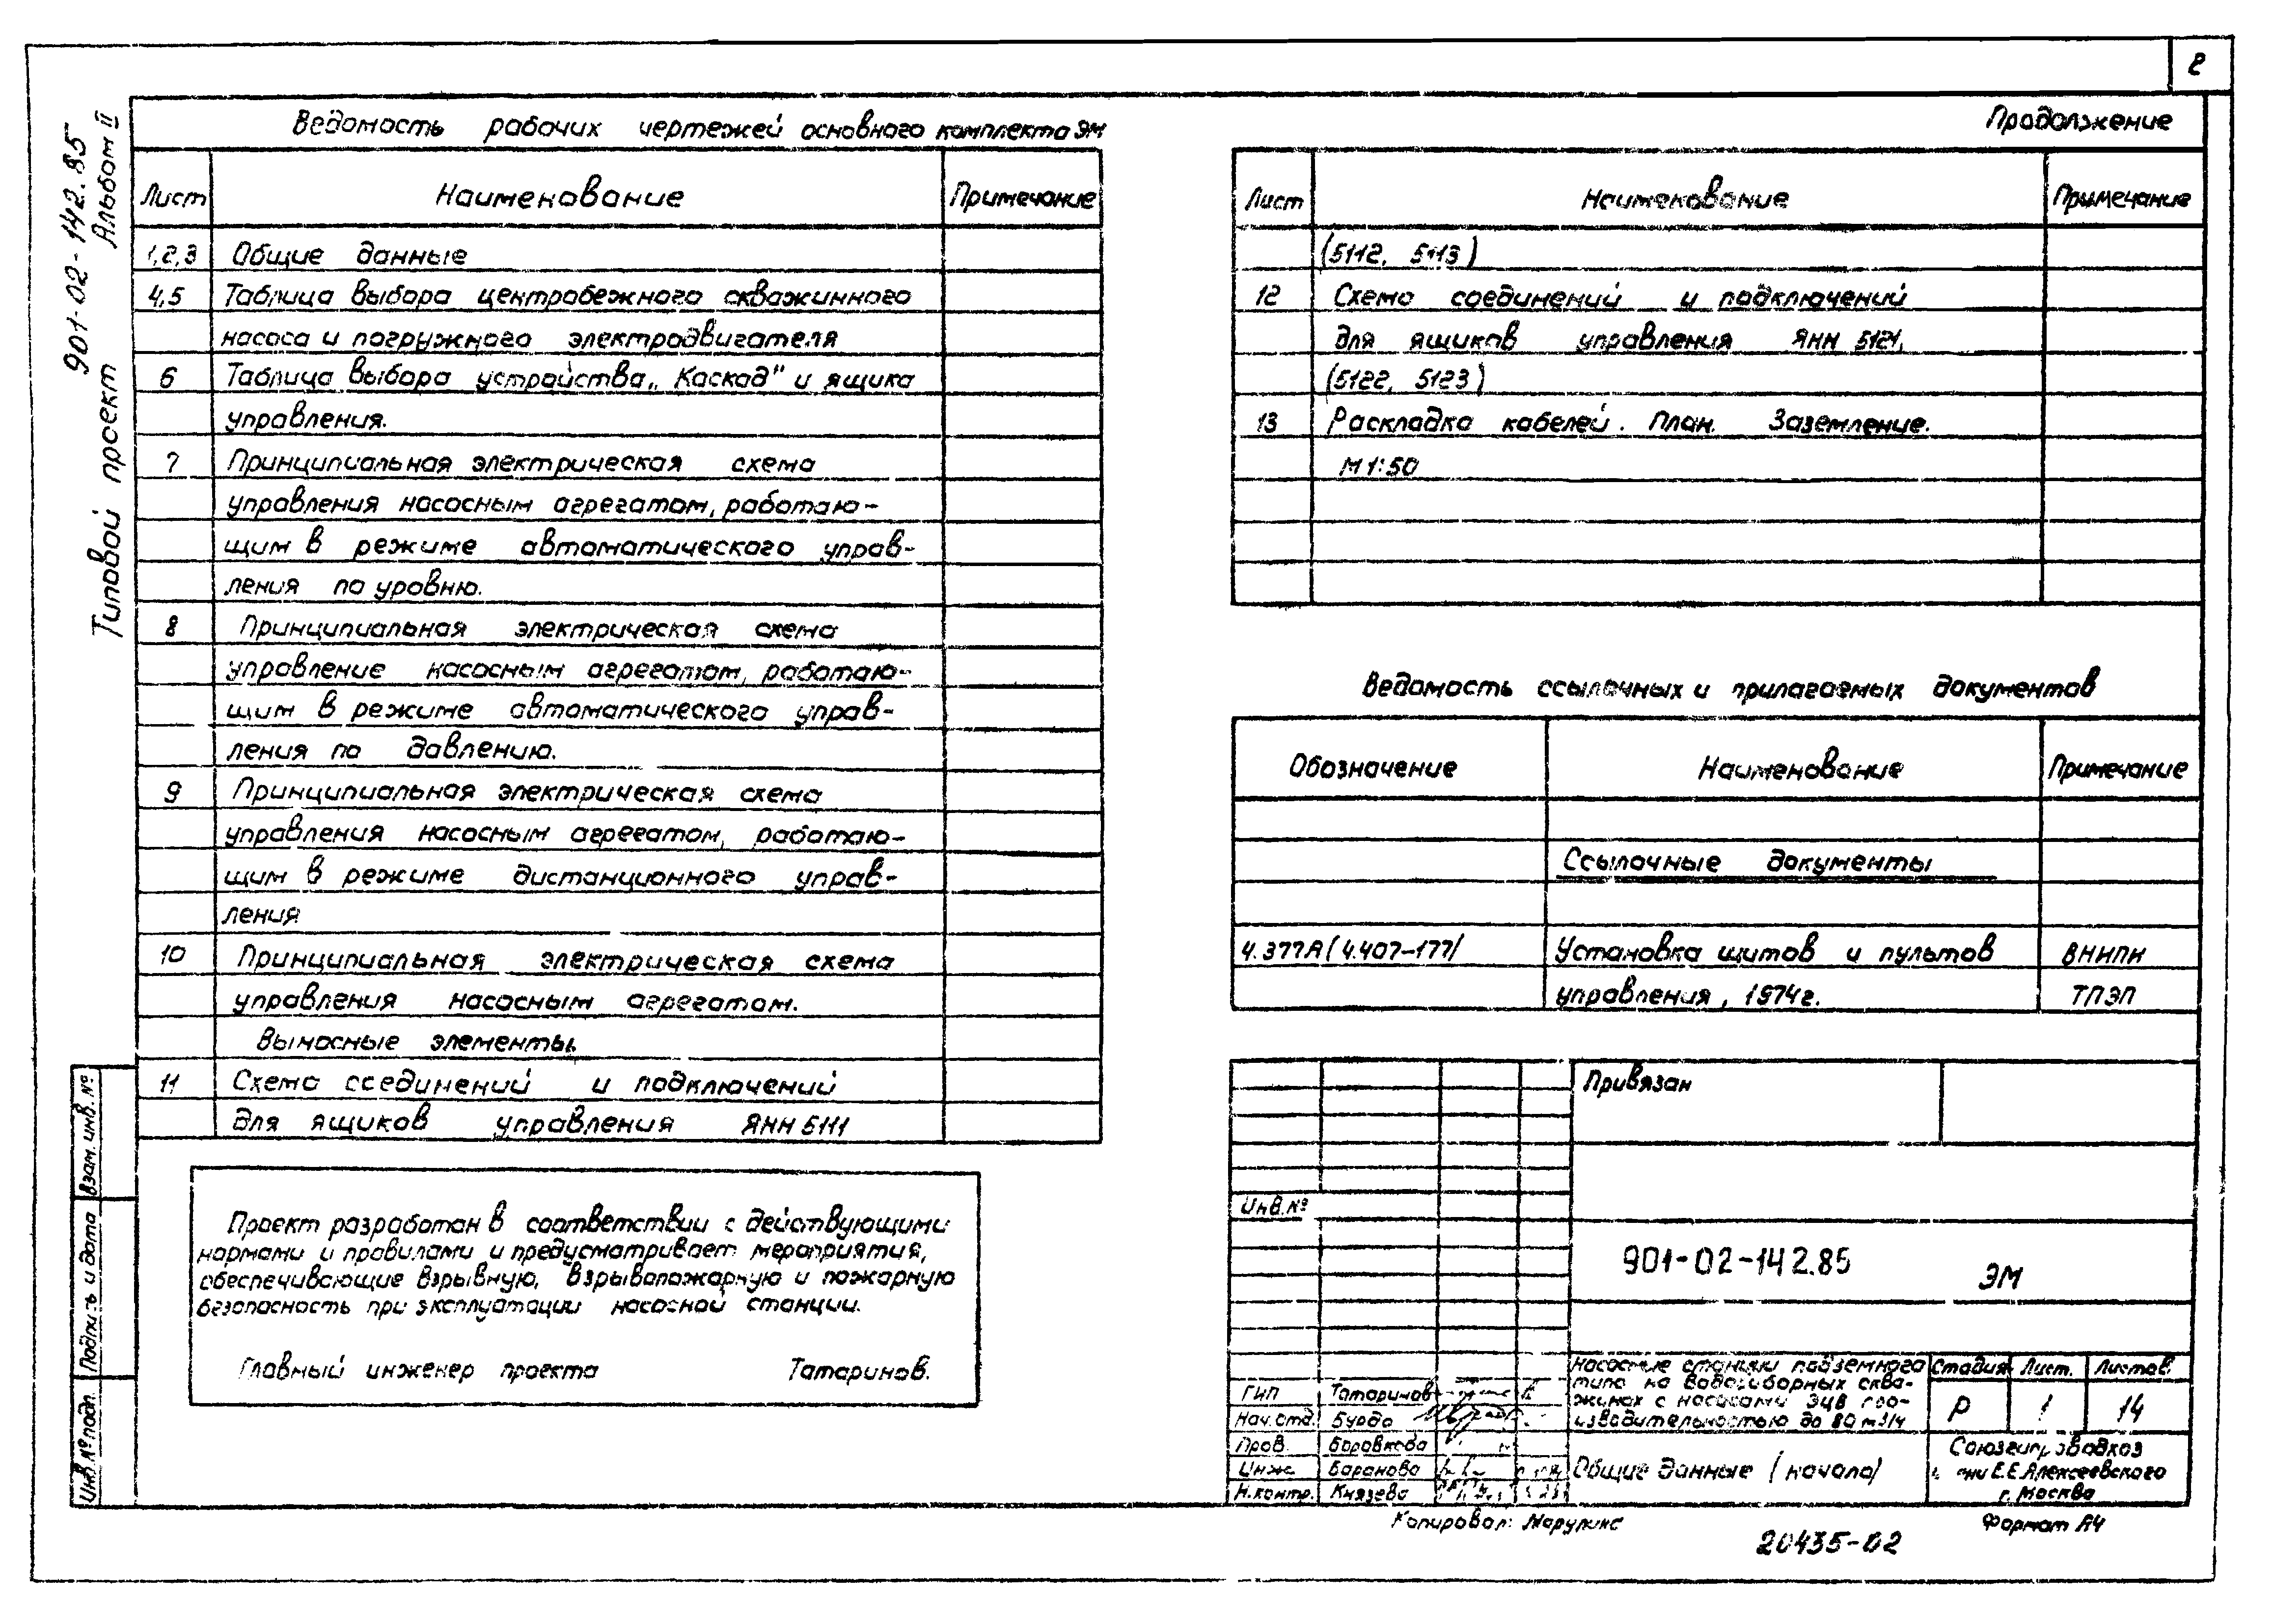 2
Типовой проект 901-02-142.85
Альбом II
Ведомость рабочих чертежей основного комплекта ЭМ
Лист Наименование Примечание
1,2,3 Общие данные
4,5 Таблица выбора центробежного скважинного
насоса и погружного электродвигателя
6 Таблица выбора устройства „Каскад" и ящика
управления.
7 Принципиальная электрическая схема
управления насосным агрегатом, работаю-
щим в режиме автоматического управ-
ления по уровню.
8 Принципиальная электрическая схема
управление насосным агрегатом, работаю-
щим в режиме автоматического управ-
ления по давлению.
9 Принципиальная электрическая схема
управления насосным агрегатом, работаю-
щим в режиме дистанционного управ-
ления
10 Принципиальная электрическая схема
управления насосным агрегатом.
Выносные элементы.
11 Схема соединений и подключений
для ящиков управления ЯНН 5111
Проект разработан в соответствии с действующими
нормами и правилами и предусматривает мероприятия,
обеспечивающие взрывную, взрывопожарную и пожарную
безопасность при эксплуатации насосной станции.
Главный инженер проекта Татаринов.
Взам. инв. №
Подпись и дата
Инв. № подл.
Продолжение
Лист Наименование Примечание
(5112, 5113)
12 Схема соединений и подключений
для ящиков управления ЯНН 5121,
(5122, 5123)
13 Раскладка кабелей. План. Заземление.
М 1:50
Ведомость ссылочных и прилагаемых документов
Обозначение Наименование Примечание
Ссылочные документы
4.377А (4.407-177/ Установка щитов и пультов ВНИПИ
управления, 1974г. ТПЭП
Привязан
Инв. №
901-02-142.85 ЭМ
Насосные станции подземного
типа на водозаборных сква-
жинах с насосами ЭЦВ про-
изводительностью до 80 м3/ч
Стадия Лист. Листов.
Р 1 14
ГИП Татаринов
Нач. отд. Бурда
Пров. Боровкова
Инж. Баранова
Н. контр. Князева
Общие данные (начало)
Союзгипроводхоз
им Е.Е.Алексеевского
г. Москва
Копировал:
Формат А4
20435-02